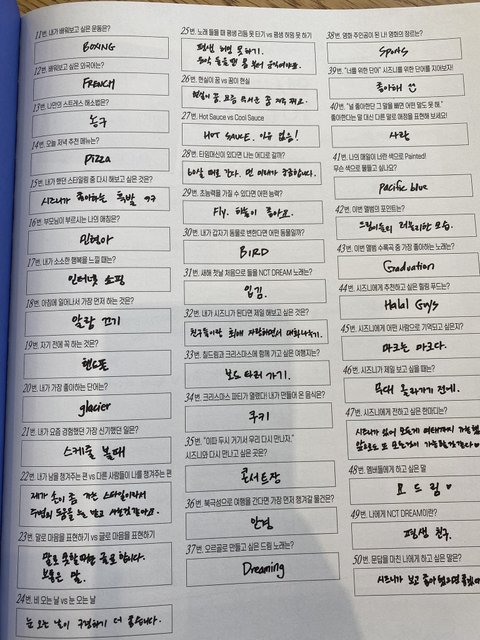 11번. 내가 배워보고 싶은 운동은?
BOXING
12번. 배워보고 싶은 외국어는?
FRENCH
13번. 나만의 스트레스 해소법은?
농구
14번. 오늘 저녁 추천 메뉴는?
Pizza
15번. 내가 했던 스타일링 중 다시 해보고 싶은 것은?
시즈니가 좋아하는 흑발
16번. 부모님이 부르시는 나의 애칭은?
민형아
17번. 내가 소소한 행복을 느낄 때는?
인터넷 쇼핑
18번. 아침에 일어나서 가장 먼저 하는 것은?
알람 끄기
19번. 자기 전에 꼭 하는 것은?
핸드폰
20번. 내가 가장 좋아하는 단어는?
glacier
21번. 내가 요즘 경험했던 가장 신기했던 일은?
스케줄 볼때
22번. 내가 남을 챙겨주는 편 vs 다른 사람들이 나를 챙겨주는 편
제가 손이 좀 가는 스타일이라서
주변의 도움을 받고
23번. 말로 마음을 표현하기 vs 글로 마음을 표현하기
말로 못할때는 글로 합니다.
보통은 말.
24번. 비 오는 날 vs 눈 오는 날
눈 오는 날이 구경하기 더 좋습니다.
25번. 노래 들을 때 평생 리듬 못 타기 vs 평생 허밍 못 하기
평생 허밍 못하기.
음악 들을땐 몸 부터 움직여야죠.
26번. 현실이 꿈 vs 꿈이 현실
현실이 꿈. 요즘
27번. Hot Sauce vs Cool Sauce
HOT SAUCE. 이유 없음!
28번. 타임머신이 있다면 나는 어디로 갈까?
60살 때로 간다. 먼 미래가 궁금합니다.
29번. 초능력을 가질 수 있다면 어떤 능력?
Fly. 하늘이 좋아요.
30번. 내가 갑자기 동물로 변한다면 어떤 동물일까?
BIRD
31번. 새해 첫날 처음으로 들을 NCT DREAM 노래는?
입김.
32번. 내가 시즈니가 된다면 제일 해보고 싶은 것은?
친구들이랑 최애 자랑하면서 대화나누기.
33번. 칠드림과 크리스마스에 함께 가고 싶은 여행지는?
보드 타러 가기.
34번. 크리스마스 파티가 열렸다! 내가 만들어 온 음식은?
쿠키
35번. "이따 두시 거기서 우리 다시 만나자."
시즈니와 다시 만나고 싶은 곳은?
콘서트장
36번. 북극성으로 여행을 간다면 가장 먼저 챙겨갈 물건은?
안경
37번. 오르골로 만들고 싶은 드림 노래는?
Dreaming
38번. 영화 주인공이 된 나! 영화의 장르는?
Sports
39번. "너를 위한 단어" 시즈니를 위한 단어를 지어보자!
좋아해
40번. "널 좋아한단 그 말을 빼면 어떤 말도 못 해."
좋아한다는 말 대신 다른 말로 애정을 표현해 보세요!
사랑
41번. 나의 매일이 너란 색으로 Painted!
무슨 색으로 물들이고 싶나요?
pacific blue
42번. 이번 앨범의 포인트는?
드림이들의 러블리한 모습.
43번. 이번 앨범 수록곡 중 가장 좋아하는 노래는?
Graduation
44번. 시즈니에게 추천하고 싶은 힐링 푸드는?
Halal Guys
45번. 시즈니에게 어떤 사람으로 기억되고 싶은지?
마크는 마크다.
46번. 시즈니가 제일 보고 싶을 때는?
무대 올라가기 전에.
47번. 시즈니에게 전하고 싶은 한마디는?
시즈니가 있어 모든게 여태까지 가능했고
앞으로도 또 모든것이 가능할거같다
48번. 멤버들에게 하고 싶은 말
요 드림
49번. 나에게 NCT DREAM이란?
평생 친구.
50번. 문답을 마친 나에게 하고 싶은 말은?
시즈니가 보고 좋아했으면